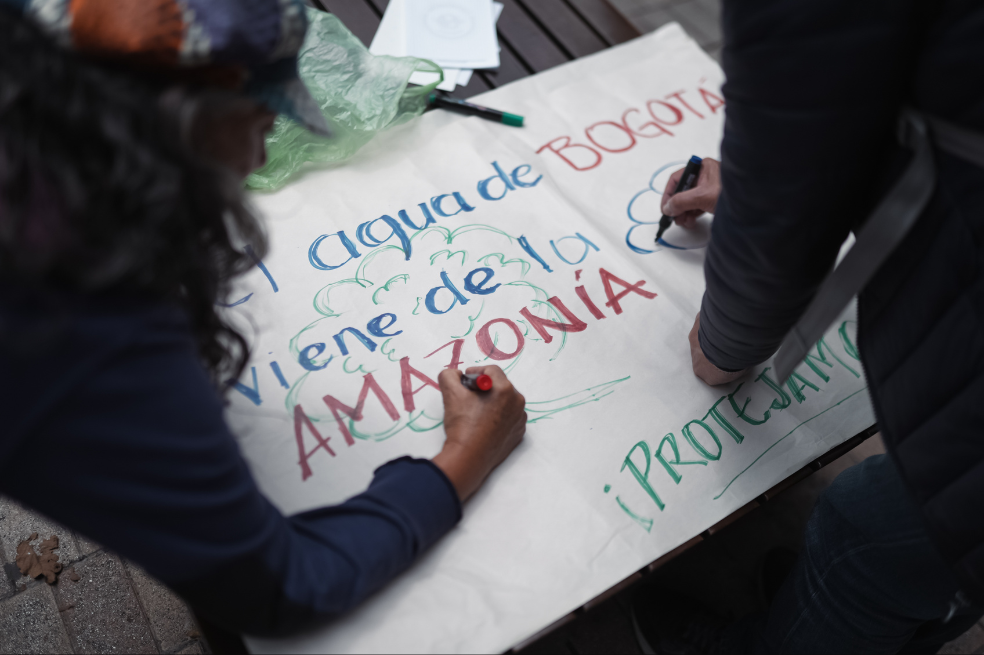 El agua de BOGOTÁ
viene de la
AMAZONÍA
¡PROTEJAMO